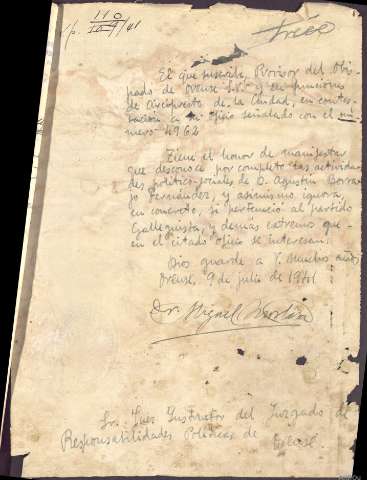 110
1/p. 10-9/41
trece
El que suscribe, Provisor del Obis-
pado de Orense S.V. y en funciones
de Arcipreste de la Ciudad, en contes-
tación a su oficio señalado con el nú-
mero 4962
Tiene el honor de manifestar
que desconoce por completo las activida-
des político-sociales de D. Agustín Borra-
jo Fernández, y asimismo ignora
en concreto, si perteneció al partido
Galleguista, y demás extremos que
en el citado oficio se interesan.
Dios guarde a V. muchos años
Orense, 9 de julio de 1941
Dr. Miguel
Sr. Juez Instructor del Juzgado de
Responsabilidades Políticas de Orense.